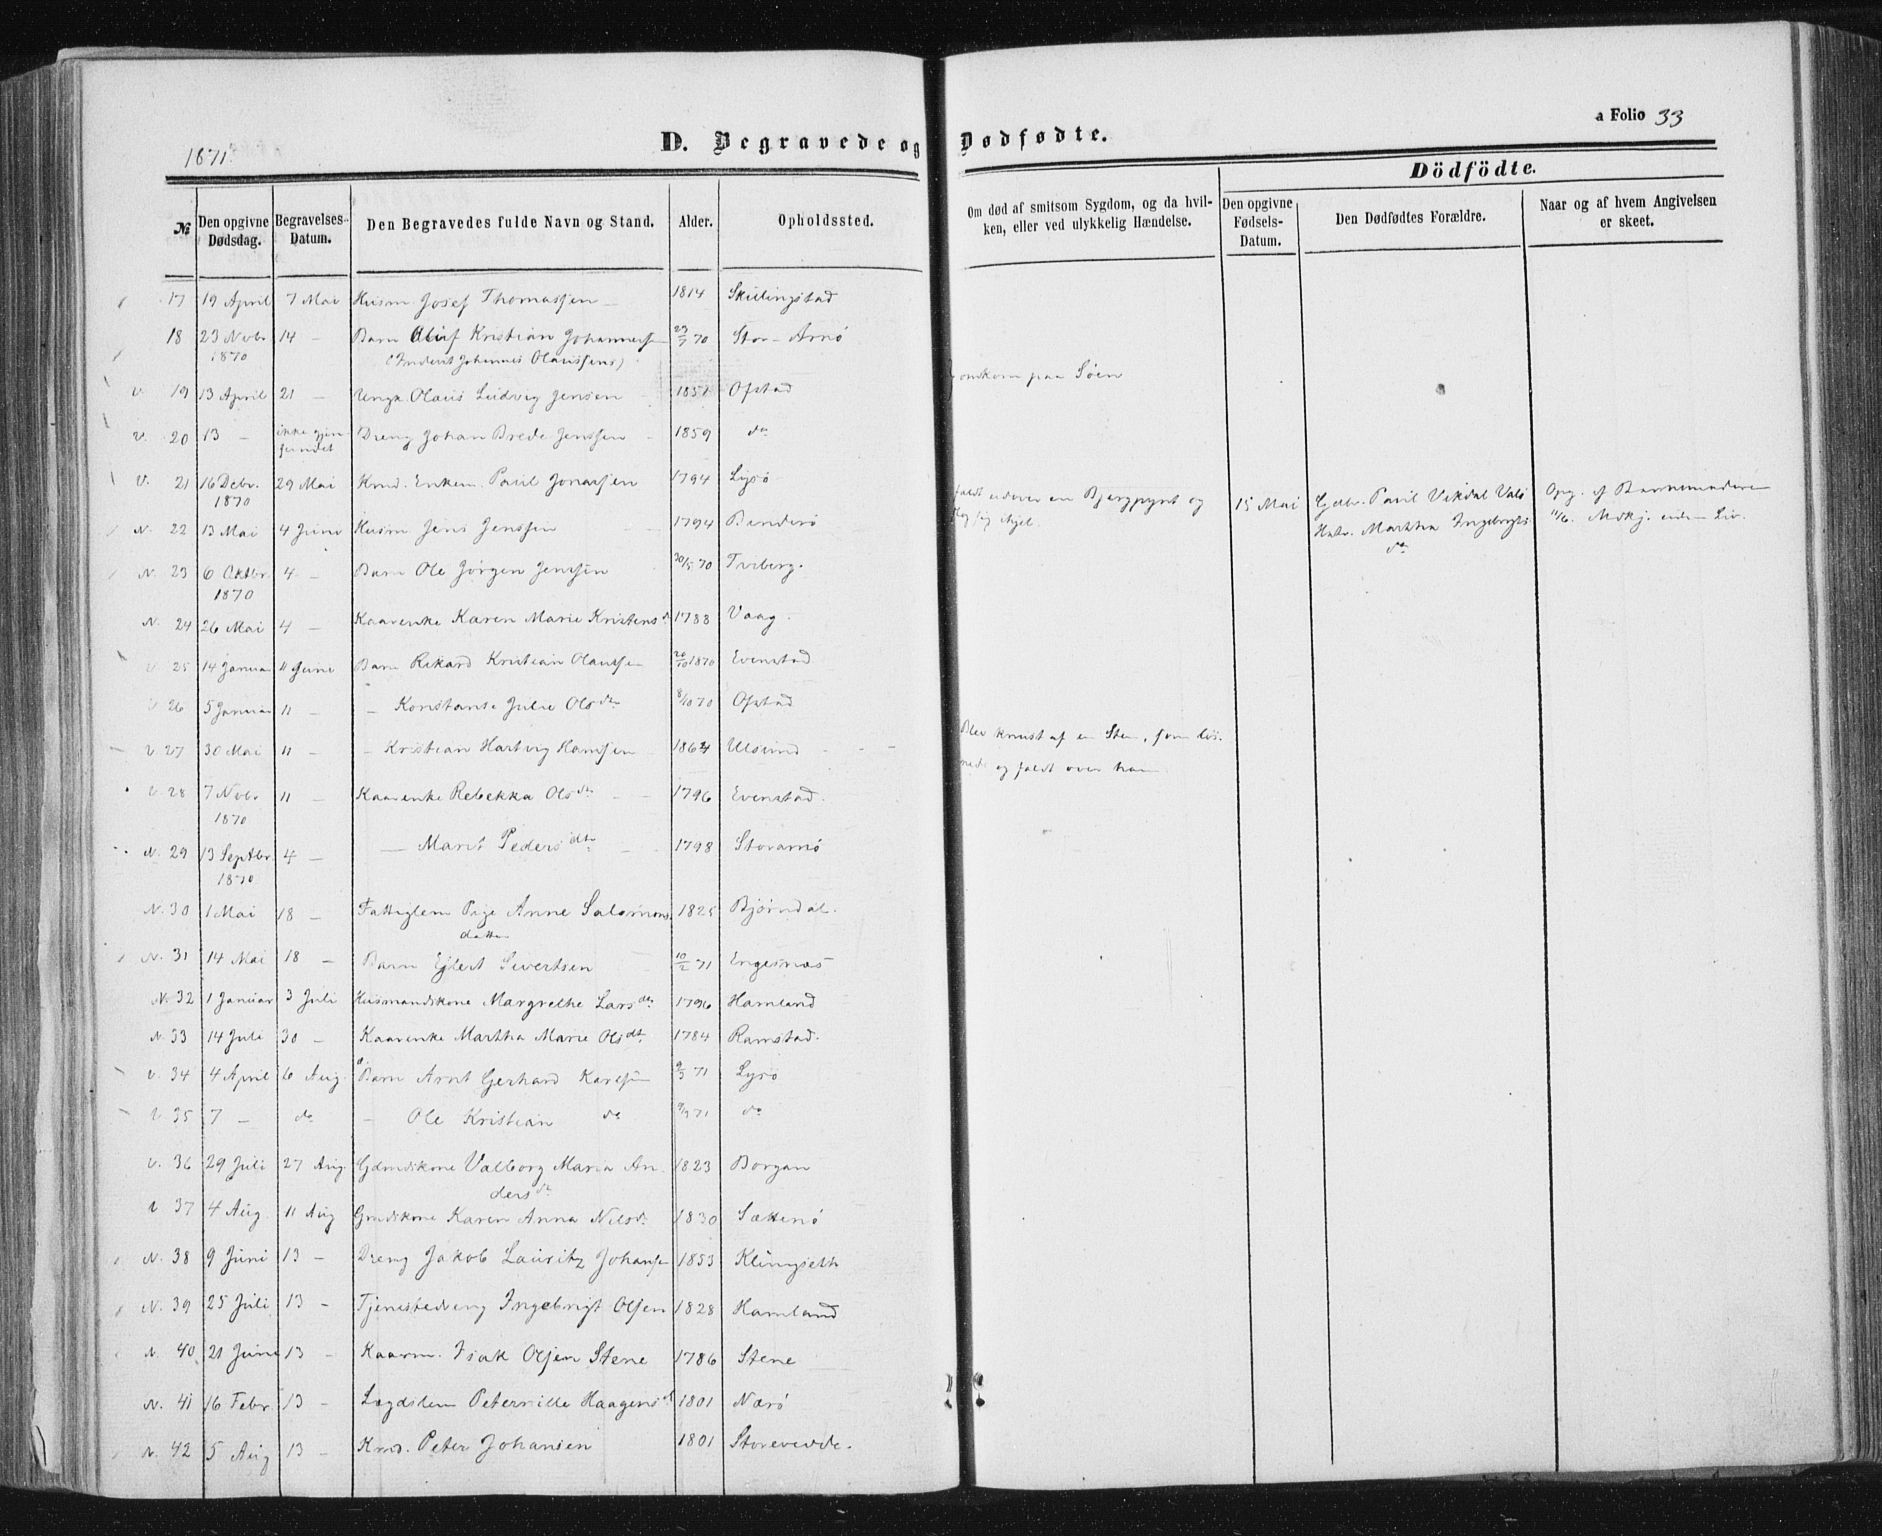 1871.
D. Begravede og Dødfødte.
a Folio 33
Dödfödte.
№ | Den opgivne Dødsdag. | Begravelses-Datum. | Den Begravedes fulde Navn og Stand. | Alder. | Opholdssted. | Om død af smitsom Sygdom, og da hvilken, eller ved ulykkelig Hændelse. | Den opgivne Fødsels-Datum. | Den Dødfødtes Forældre. | Naar og af hvem Angivelsen er skeet.
17 19 April 7 Mai Husm Josef Thomassen 1814 Skillingstad
18 23 Novbr 14 – Barn Oluf Kristian Johannessen 23/7 70 Stor-Arnø
1870 (Inderst Johannes Olaussens)
V. 19 13 April 21 – Ungk. Olaus Ludvig Jensen 1851 Ofstad omkom paa Søen
V. 20 13 – ikke gjen- Dreng Johan Brede Jenssen 1859 do
fundet
V. 21 16 Decbr. 29 Mai Kmd. Enkem. Paul Jonassen 1794 Lysø
1870
faldt udover en Bjergpynt og
slog sig ihjel.
15 Mai Gdbr. Paul Vikdal Valø
Hstr. Martha Ingebrigts-
da
Opg. af Barnemoderen
11/6.
N. 22 13 Mai 4 Juni Husm Jens Jenssen 1794 Benderø
N. 23 6 Oktbr. 4 – Barn Ole Jørgen Jenssen 30/5 70 Treberg.
1870
N. 24 26 Mai 4 – Kaarenke Karen Marie Kristensd 1788 Vaag.
V. 25 14 Januar 11 Juni Barn Rikard Kristian Olaussen 20/10 1870 Evenstad
V. 26 5 Januar 11 – – Konstanse Julie Olsdtr 8/10 70 Ofstad
V. 27 30 Mai 11 – – Kristian Hartvig Hansen 1864 Ulsund
Blev knust af en Sten, som løs-
nede og faldt over ham
V. 28 7 Nvbr 11 – Kaarenke Rebekka Olsdtr 1796 Evenstad.
1870
N. 29 13 Septbr. 4 – – Marit Pedersdtr 1798 Storarnø
1870
N. 30 1 Mai 18 – Fattiglem Pige Anne Salamons- 1825 Bjørndal.
datter
N. 31 14 Mai 18 – Barn Ejlert Sivertsen 10/2 71 Engesnæs
N. 32 1 Januar 3 Juli Husmandskone Margrethe Larsdtr 1796 Hamland
N. 33 14 Juli 30 – Kaarenke Martha Marie Olsdt. 1784 Ramstad.
V. 34 4 April 6 Aug. Barn Arnt Gerhard Karlsen 9/3 71 Lysø
V. 35 7 – do – Ole Kristian do 9/3 71 do
V. 36 29 Juli 27 Aug. Gdmdskone Valborg Maria An- 1823 Borgan
dersdr
V 37 4 Aug. 11 Aug Grndskone Karen Anna Nilsd. 1830 Sættenø
N. 38 9 Juni 13 – Dreng Jakob Lauritz Johansen 1853 Klingseth
N. 39 25 Juli 13 – Tjenestedreng Ingebrigt Olsen 1828 Hamland
N. 40 21 Juni 13 – Kaarm. Isak Olsen Stene 1786 Stene
N. 41 16 Febr 13 – Lægdslem Peternille Haagensd 1801 Nærø
N. 42 5 Aug 13 – Kmd. Peter Johansen 1801 Storevedde.